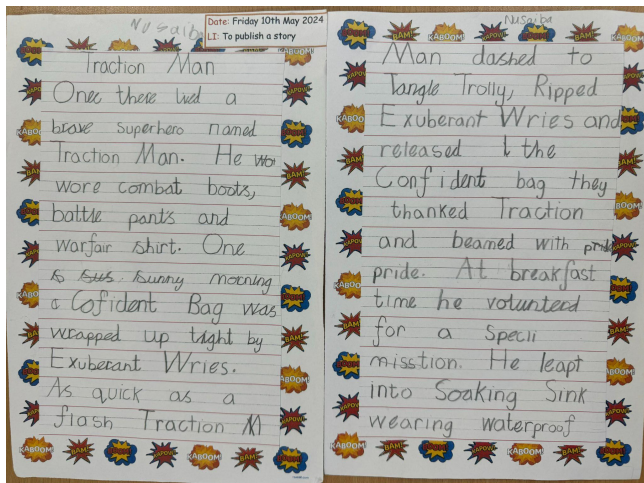 Nusaiba
Date: Friday 10th May 2024
LI: To publish a story
Traction Man
Once there lived a
brave superhero named
Traction Man. He wo
wore combat boots,
battle pants and
warfair shirt. One
s sus sunny morning
a Cofident Bag was
wrapped up tight by
Exuberant Wries.
As quick as a
flash Traction M
Nusaiba
Man dashed to
Tangle Trolly, Ripped
Exuberant Wries and
released the
Confident bag they
thanked Traction
and beamed with pride
pride. At breakfast
time he voluntered
for a Specil
misstion. He leapt
into Soaking Sink
wearing waterproof
KABOOM!
BAM!
KAPOW!